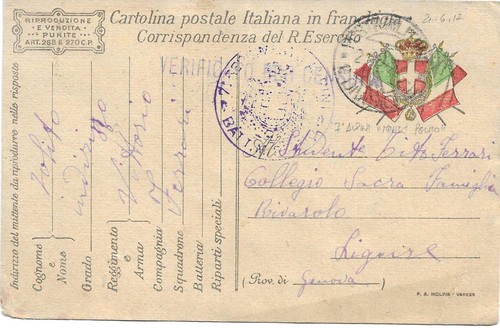 RIPRODUZIONE
E VENDITA
PUNITE
ART. 268 E 270 C.P.
Cartolina postale Italiana in franchigia
Corrispondenza del R. Esercito
VERIFICATO
BATT
Indirizzo del mittente da riprodurre nello risposte
Cognome e Nome
Grado
Reggimento e Arma
Compagnia
Squadrone
Batteria
Riparti speciali
solito
indirizzo
Vittorio
Ferrari
Studente Vitt. Ferrari
Collegio Sacra Famiglia
Rivarolo
Ligure
(Prov. di Genova)
F. A. MOLINA - VARESE